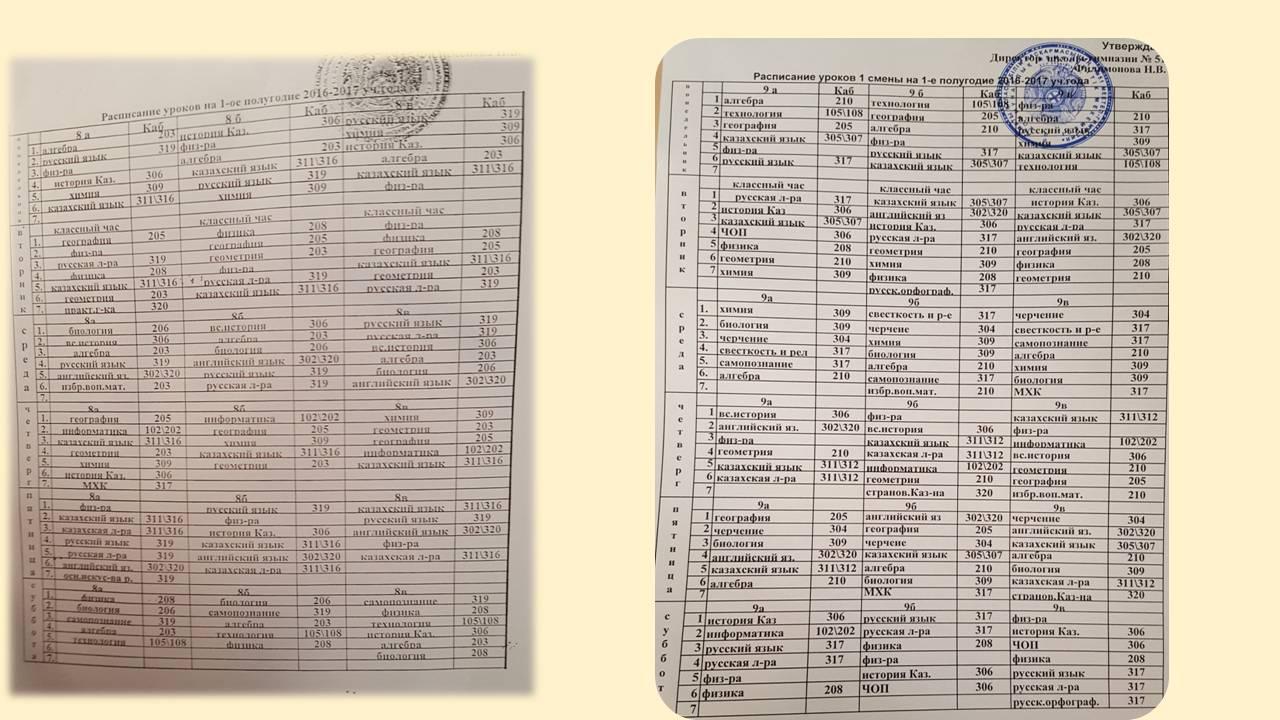 Расписание уроков на 1-ое полугодие 2016-2017 уч.года
8 а Каб 8 б Каб 8 в Каб
1. алгебра 203 история Каз. 306 русский язык 319
2. русский язык 319 физ-ра химия 309
3. физ-ра алгебра 203 история Каз. 306
4. история Каз. 306 казахский язык 311\316 алгебра 203
5. химия 309 русский язык 319 казахский язык 311\316
6. казахский язык 311\316 химия 309 физ-ра
7.
вторник
классный час классный час классный час
1. география 205 физика 208 физ-ра
2. физ-ра география 205 физика 208
3. русская л-ра 319 геометрия 203 география 205
4. физика 208 физ-ра казахский язык 311\316
5. казахский язык 311\316 русская л-ра 319 геометрия 203
6. геометрия 203 казахский язык 311\316 русская л-ра 319
7. практ.г-ка 320
среда
8а 8б 8в
1. биология 206 вс.история 306 русский язык 319
2. вс.история 306 алгебра 203 русская л-ра 319
3. алгебра 203 биология 206 вс.история 306
4. русский язык 319 английский язык 302\320 алгебра 203
5. английский яз. 302\320 русский язык 319 биология 206
6. избр.воп.мат. 203 русская л-ра 319 английский язык 302\320
7.
четверг
8а 8б 8в
1. география 205 информатика 102\202 химия 309
2. информатика 102\202 география 205 геометрия 203
3. казахский язык 311\316 химия 309 география 205
4. геометрия 203 казахский язык 311\316 информатика 102\202
5. химия 309 геометрия 203 казахский язык 311\316
6. история Каз. 306
7. МХК 317
пятница
8а 8б 8в
1. физ-ра русский язык 319 казахский язык 311\316
2. казахский язык 311\316 физ-ра русский язык 319
3. казахская л-ра 311\316 история Каз. 306 английский язык 302\320
4. русский язык 319 казахский язык 311\316 физ-ра
5. русская л-ра 319 английский язык 302\320 казахская л-ра 311\316
6. английский яз. 302\320 казахская л-ра 311\316
7. осн.искус-ва р. 319
суббота
8а 8б 8в
1. физика 208 биология 206 самопознание 319
2. биология 206 самопознание 319 физика 208
3. самопознание 319 алгебра 203 технология 105\108
4. алгебра 203 технология 105\108 история Каз. 306
5. технология 105\108 физика 208 алгебра 203
6. биология 208
7.
Утвержда
Директор школы-гимназии № 5.
Филимонова Н.В.
Расписание уроков 1 смены на 1-е полугодие 2016-2017 уч.года
понедельник
9 а Каб 9 б Каб 9 в Каб
1 алгебра 210 технология 105\108 физ-ра
2 технология 105\108 география 205 алгебра 210
3 география 205 алгебра 210 русский язык 317
4 казахский язык 305\307 физ-ра химия 309
5 физ-ра русский язык 317 казахский язык 305\307
6 русский язык 317 казахский язык 305\307 технология 105\108
7
вторник
классный час классный час классный час
1 русская л-ра 317 казахский язык 305\307 история Каз. 306
2 история Каз 306 английский яз 302\320 казахский язык 305\307
3 казахский язык 305\307 история Каз. 306 русская л-ра 317
4 ЧОП 306 русская л-ра 317 английский яз. 302\320
5 физика 208 геометрия 210 география 205
6 геометрия 210 химия 309 физика 208
7 химия 309 физика 208 геометрия 210
русск.орфограф. 317
среда
9а 9б 9в
1. химия 309 свесткость и р-е 317 черчение 304
2. биология 309 черчене 304 свесткость и р-е 317
3. черчение 304 химия 309 самопознание 317
4. свесткость и рел 317 биология 309 алгебра 210
5. самопознание 317 алгебра 210 химия 309
6. алгебра 210 самопознание 317 биология 309
7. избр.воп.мат. 210 МХК 317
четверг
9а 9б 9в
1 вс.история 306 физ-ра казахский язык 311\312
2 английский яз. 302\320 вс.история 306 физ-ра
3 физ-ра казахский язык 311\312 информатика 102\202
4 геометрия 210 казахская л-ра 311\312 вс.история 306
5 казахский язык 311\312 информатика 102\202 геометрия 210
6 казахская л-ра 311\312 геометрия 210 география 205
7 странов.Каз-на 320 избр.воп.мат. 210
пятница
9а 9б 9в
1 география 205 английский яз 302\320 черчение 304
2 черчение 304 география 205 английский яз. 302\320
3 биология 309 черчене 304 казахский язык 305\307
4 английский яз. 302\320 казахский язык 305\307 алгебра 210
5 казахский язык 311\312 алгебра 210 биология 309
6 алгебра 210 биология 309 казахская л-ра 311\312
7 МХК 317 странов.Каз-на 320
суббот
9а 9б 9в
1 история Каз 306 русский язык 317 физ-ра
2 информатика 102\202 русская л-ра 317 история Каз. 306
3 русский язык 317 физика 208 ЧОП 306
4 русская л-ра 317 физ-ра физика 208
5 физ-ра история Каз. 306 русский язык 317
6 физика 208 ЧОП 306 русская л-ра 317
7 русск.орфограф. 317